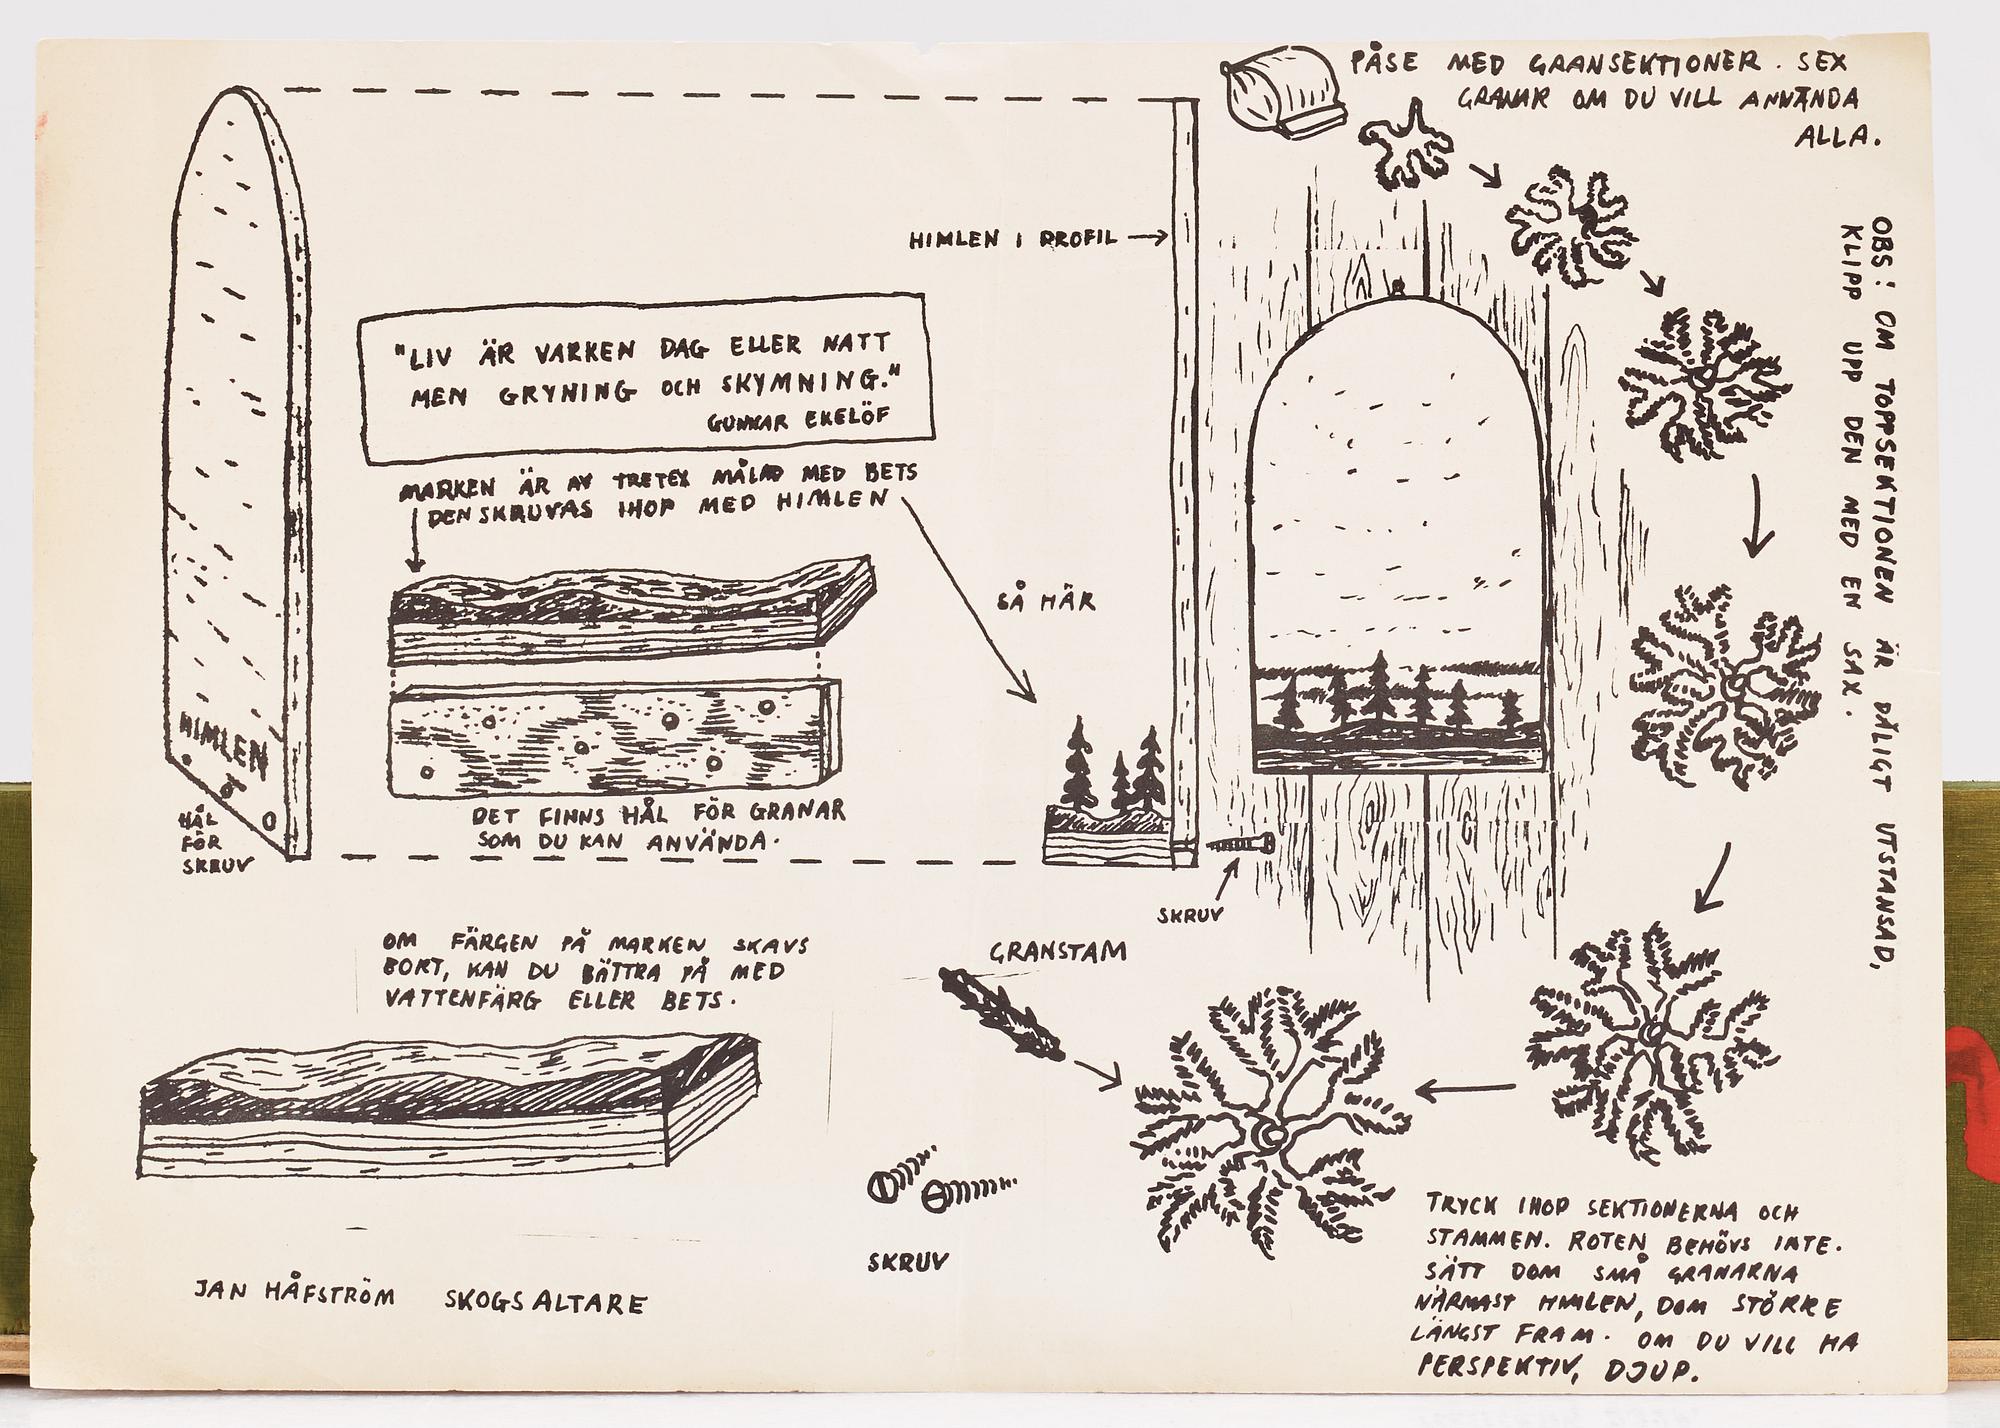 PÅSE MED GRANSEKTIONER. SEX
GRANAR OM DU VILL ANVÄNDA
ALLA.
OBS! OM TOPPSEKTIONEN ÄR DÅLIGT UTSTANSAD,
KLIPP UPP DEN MED EN SAX.
HIMLEN I PROFIL
"LIV ÄR VARKEN DAG ELLER NATT
MEN GRYNING OCH SKYMNING."
GUNNAR EKELÖF
MARKEN ÄR AV TRETEX MÅLAD MED BETS
DEN SKRUVAS IHOP MED HIMLEN
SÅ HÄR
HIMLEN
HÅL
FÖR
SKRUV
DET FINNS HÅL FÖR GRANAR
SOM DU KAN ANVÄNDA.
SKRUV
OM FÄRGEN PÅ MARKEN SKAVS
BORT, KAN DU BÄTTRA PÅ MED
VATTENFÄRG ELLER BETS.
GRANSTAM
SKRUV
TRYCK IHOP SEKTIONERNA OCH
STAMMEN. ROTEN BEHÖVS INTE.
SÄTT DOM SMÅ GRANARNA
NÄRMAST HIMLEN, DOM STÖRRE
LÄNGST FRAM. OM DU VILL HA
PERSPEKTIV, DJUP.
JAN HÅFSTRÖM SKOGSALTARE